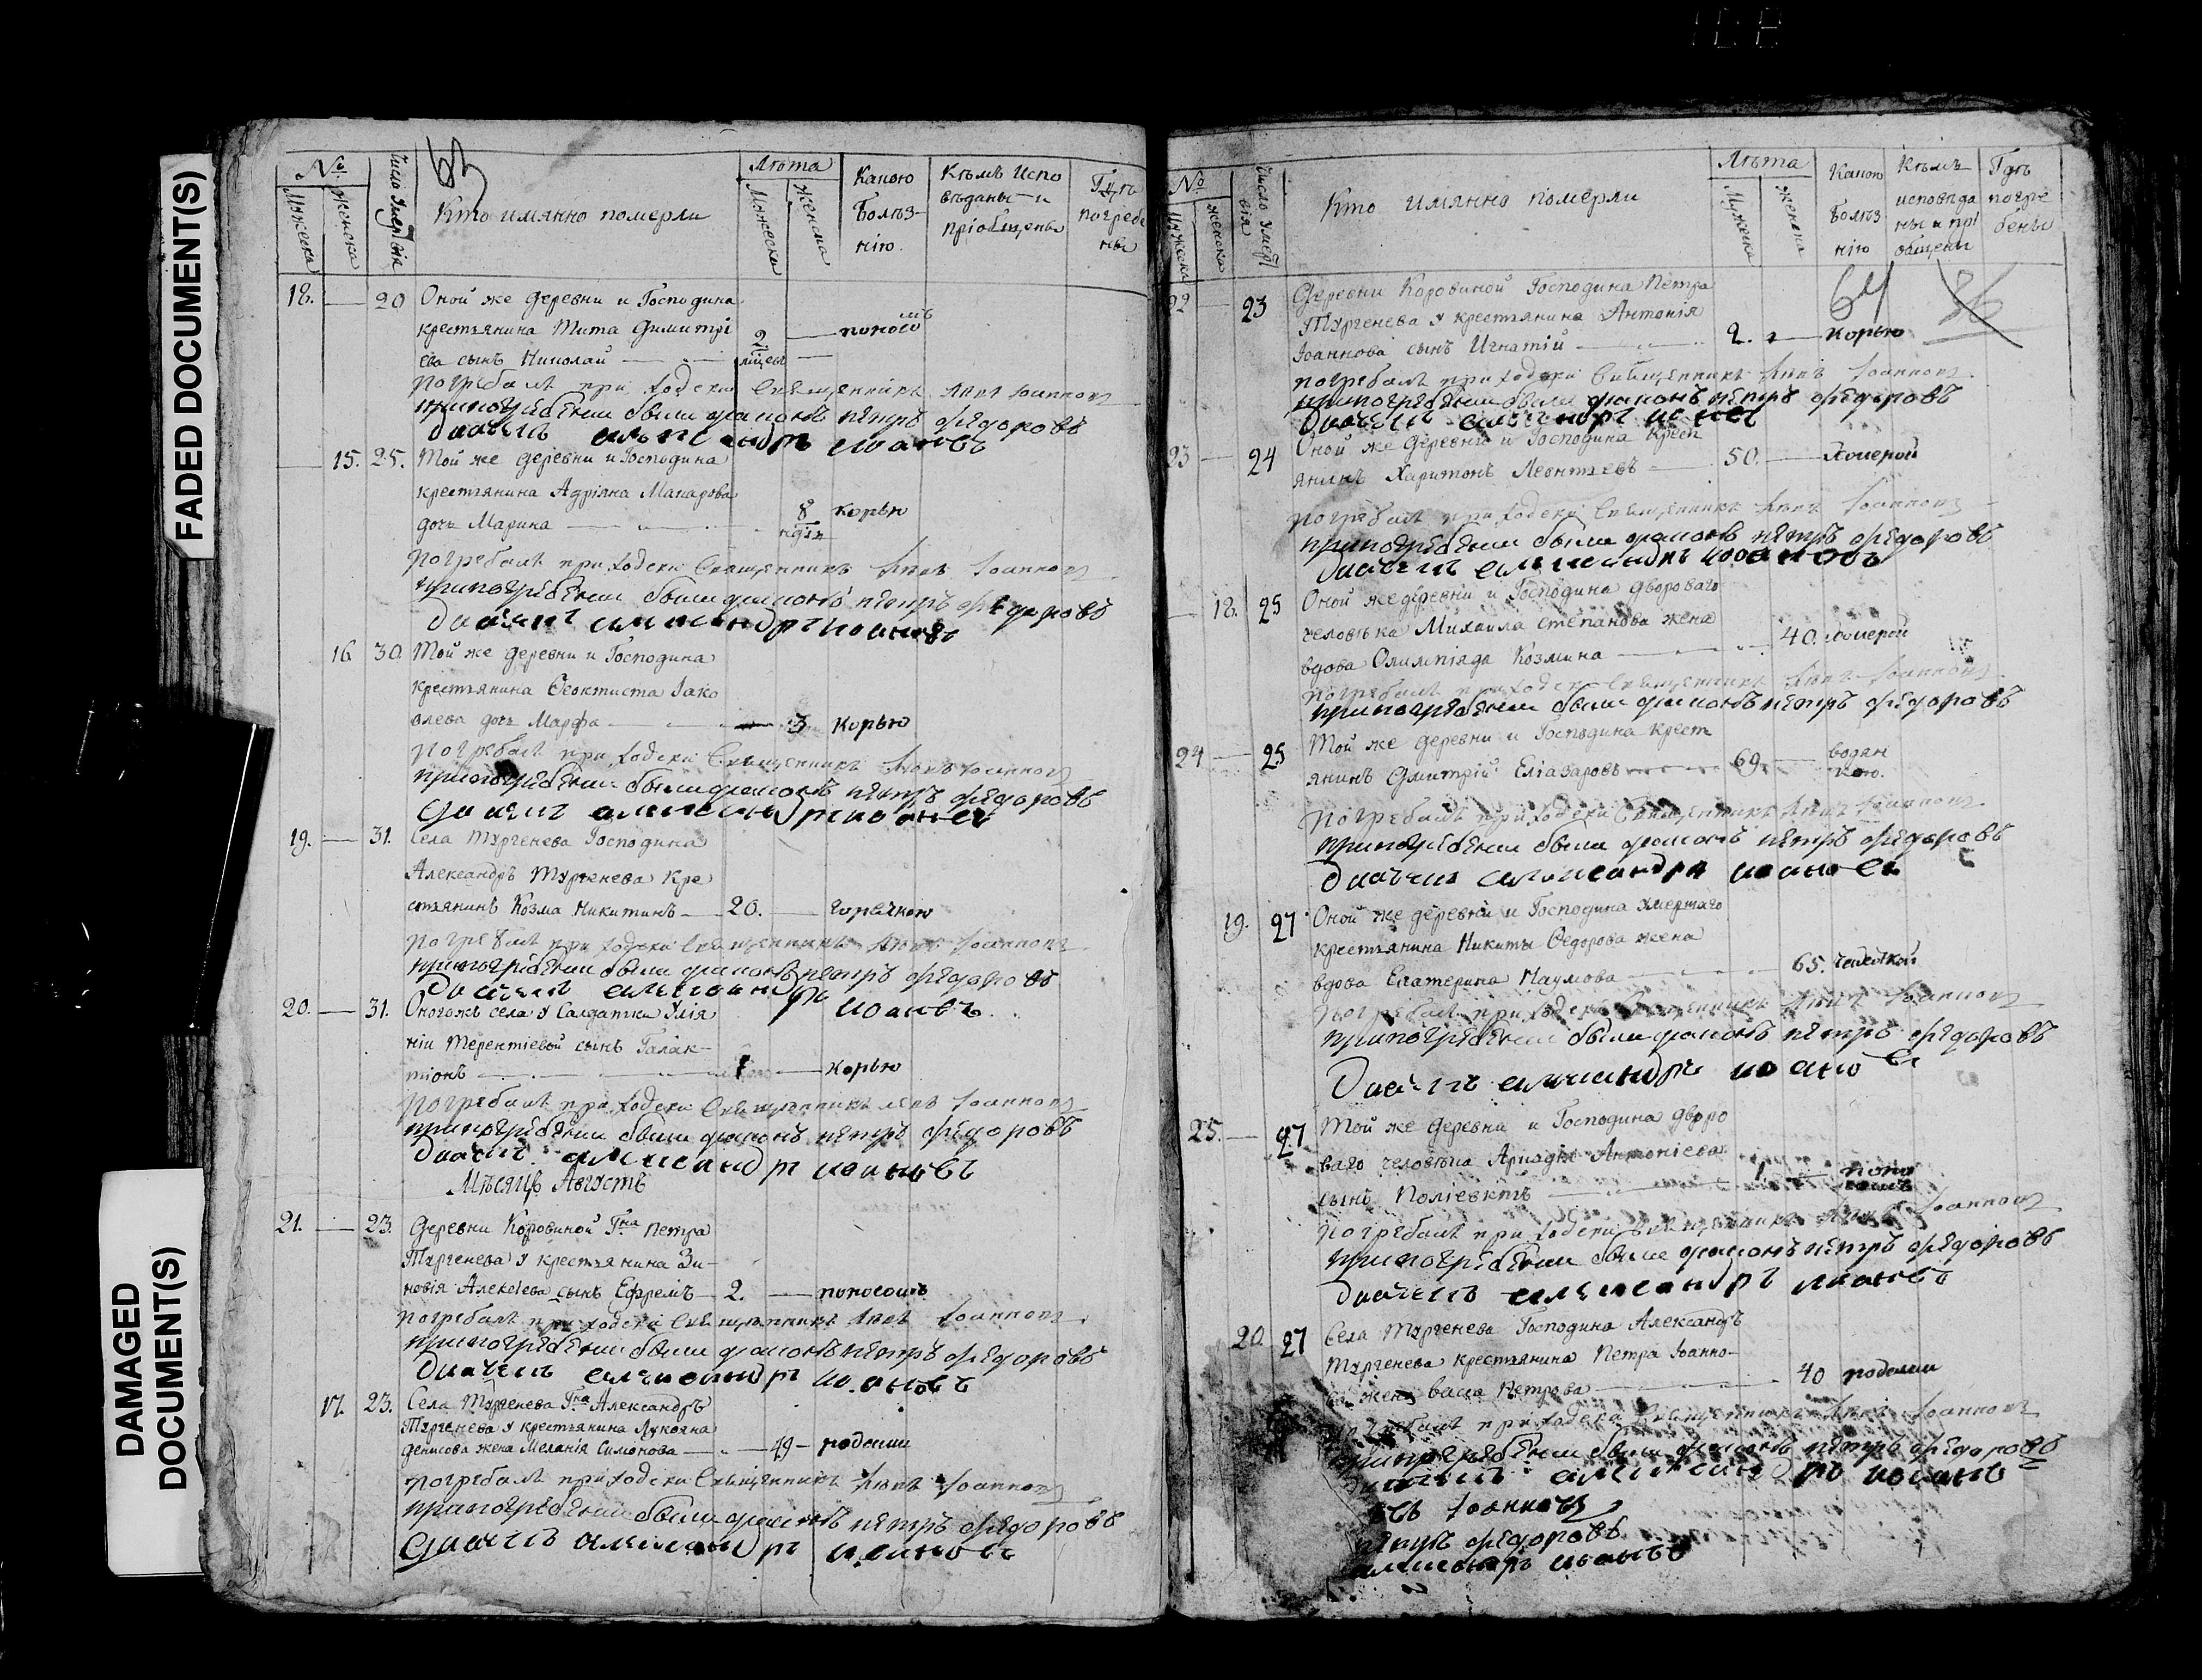 FADED DOCUMENT(S)
DAMAGED
DOCUMENT(S)
63
№
Мужеска
женска
Число Умертвія
Кто имянно померли
Лѣта
Мужеска
женска
Какою
Болѣз-
нію.
Кѣмъ Испо
вѣданы и
пріобщены
Гдѣ
погребе
ны
18. — 20 Оной же деревни и Господина
крестьянина Тита Димитрі
ева сынъ Николай — 2 мѣсец — поносомъ
Погребалъ приходски Священникъ Іоаннов
при погребении были диаконъ петръ федоровъ
Дьячекъ александръ иоановъ
— 15. 25. Той же деревни и Господина
крестьянина Адріяна Макарова
дочь Марина — 8 ндѣл корью
Погребалъ приходски Священникъ Іоаннов
при погребении были диаконъ петръ федоровъ
Дьячекъ александръ иоановъ
16 30. Той же деревни и Господина
крестьянина Ѳеоктиста Іако
влева дочь Марфа — 3 корью
Погребалъ приходски Священникъ Іоаннов
при погребении были диаконъ петръ федоровъ
Дьячекъ александръ иоановъ
19. — 31. Села Тургенева Господина
Александръ Тургенева Кре
стьянинъ Козма Никитинъ — 20. — горячкою
Погребалъ приходски Священникъ Іоаннов
при погребении были диаконъ петръ федоровъ
Дьячекъ александръ иоановъ
20. — 31. Оногожъ села у Салдатки Улія
ніи Терентіевой сынъ Галак-
тіонъ — 1 — корью
Погребалъ приходски Священникъ Іоаннов
при погребении были диаконъ петръ федоровъ
Дьячекъ александръ иоановъ
Мѣсяцъ Августъ
21. — 23. Деревни Коровиной Гна Петра
Тургенева у крестьянина Зи-
новія Алексіева сынъ Ефремъ — 2. — поносомъ
Погребалъ приходски Священникъ Іоаннов
при погребении были диаконъ петръ федоровъ
Дьячекъ александръ иоановъ
17. 23. Села Тургенева Гна Александръ
Тургенева у крестьянина Лукояна
Денисова жена Меланія Симонова — 49 — родами
Погребалъ приходски Священникъ Іоаннов
при погребении были диаконъ петръ федоровъ
Дьячекъ александръ иоановъ
№
Мужеска
женска
Число Умерт
вія
Кто имянно померли
Лѣта
Мужеска
женска
Какою
Болѣз
нію
Кѣмъ
исповѣда
ны и прі
общены
Гдѣ
погре
бены
64
22 — 23 Деревни Коровиной Господина Петра
Тургенева у крестьянина Антонія
Іоаннова сынъ Игнатій — 2. — Корью
погребалъ приходски Священникъ Іоаннов
при погребении были диаконъ петръ федоровъ
Дьячекъ александръ
23 — 24 Оной же деревни и Господина крест
янинъ Харитонъ Леонтьевъ — 50. — Холерой
Погребалъ приходски Священникъ Іоаннов
при погребении были диаконъ петръ федоровъ
Дьячекъ александръ иоановъ
— 18. 25 Оной же деревни и Господина двороваго
человѣка Михаила Степанова жена
вдова Олимпіяда Козмина — 40. холерой
Погребалъ приходски Священникъ Іоаннов
при погребении были диаконъ петръ федоровъ
24 — 25 Той же деревни и Господина крест
янинъ Дмитрій Еліазаровъ — 69. — водян
кою.
Погребалъ приходски Священникъ Іоаннов
при погребении были диаконъ петръ федоровъ
Дьячекъ александръ иоановъ
19. 27 Оной же деревни и Господина умершаго
крестьянина Никиты Ѳедорова жена
вдова Екатерина Наумова — 65.
Погребалъ приходски Священникъ Іоаннов
при погребении были диаконъ петръ федоровъ
Дьячекъ александръ иоановъ
25. — 27 Той же деревни и Господина дворо
ваго человѣка Аркадія Антоніева
сынъ Поліевктъ — 1 — поно
сомъ
Погребалъ приходски Священникъ Іоаннов
при погребении были диаконъ петръ федоровъ
Дьячекъ александръ иоановъ
20. 27 Села Тургенева Господина Александръ
Тургенева крестьянина Петра Іоанно-
ва жена Васса Петрова — 40 родами
Погребалъ приходски Священникъ Іоаннов
при погребении были диаконъ петръ федоровъ
александръ иоановъ
Іоанновъ
петръ федоровъ
александръ иоановъ